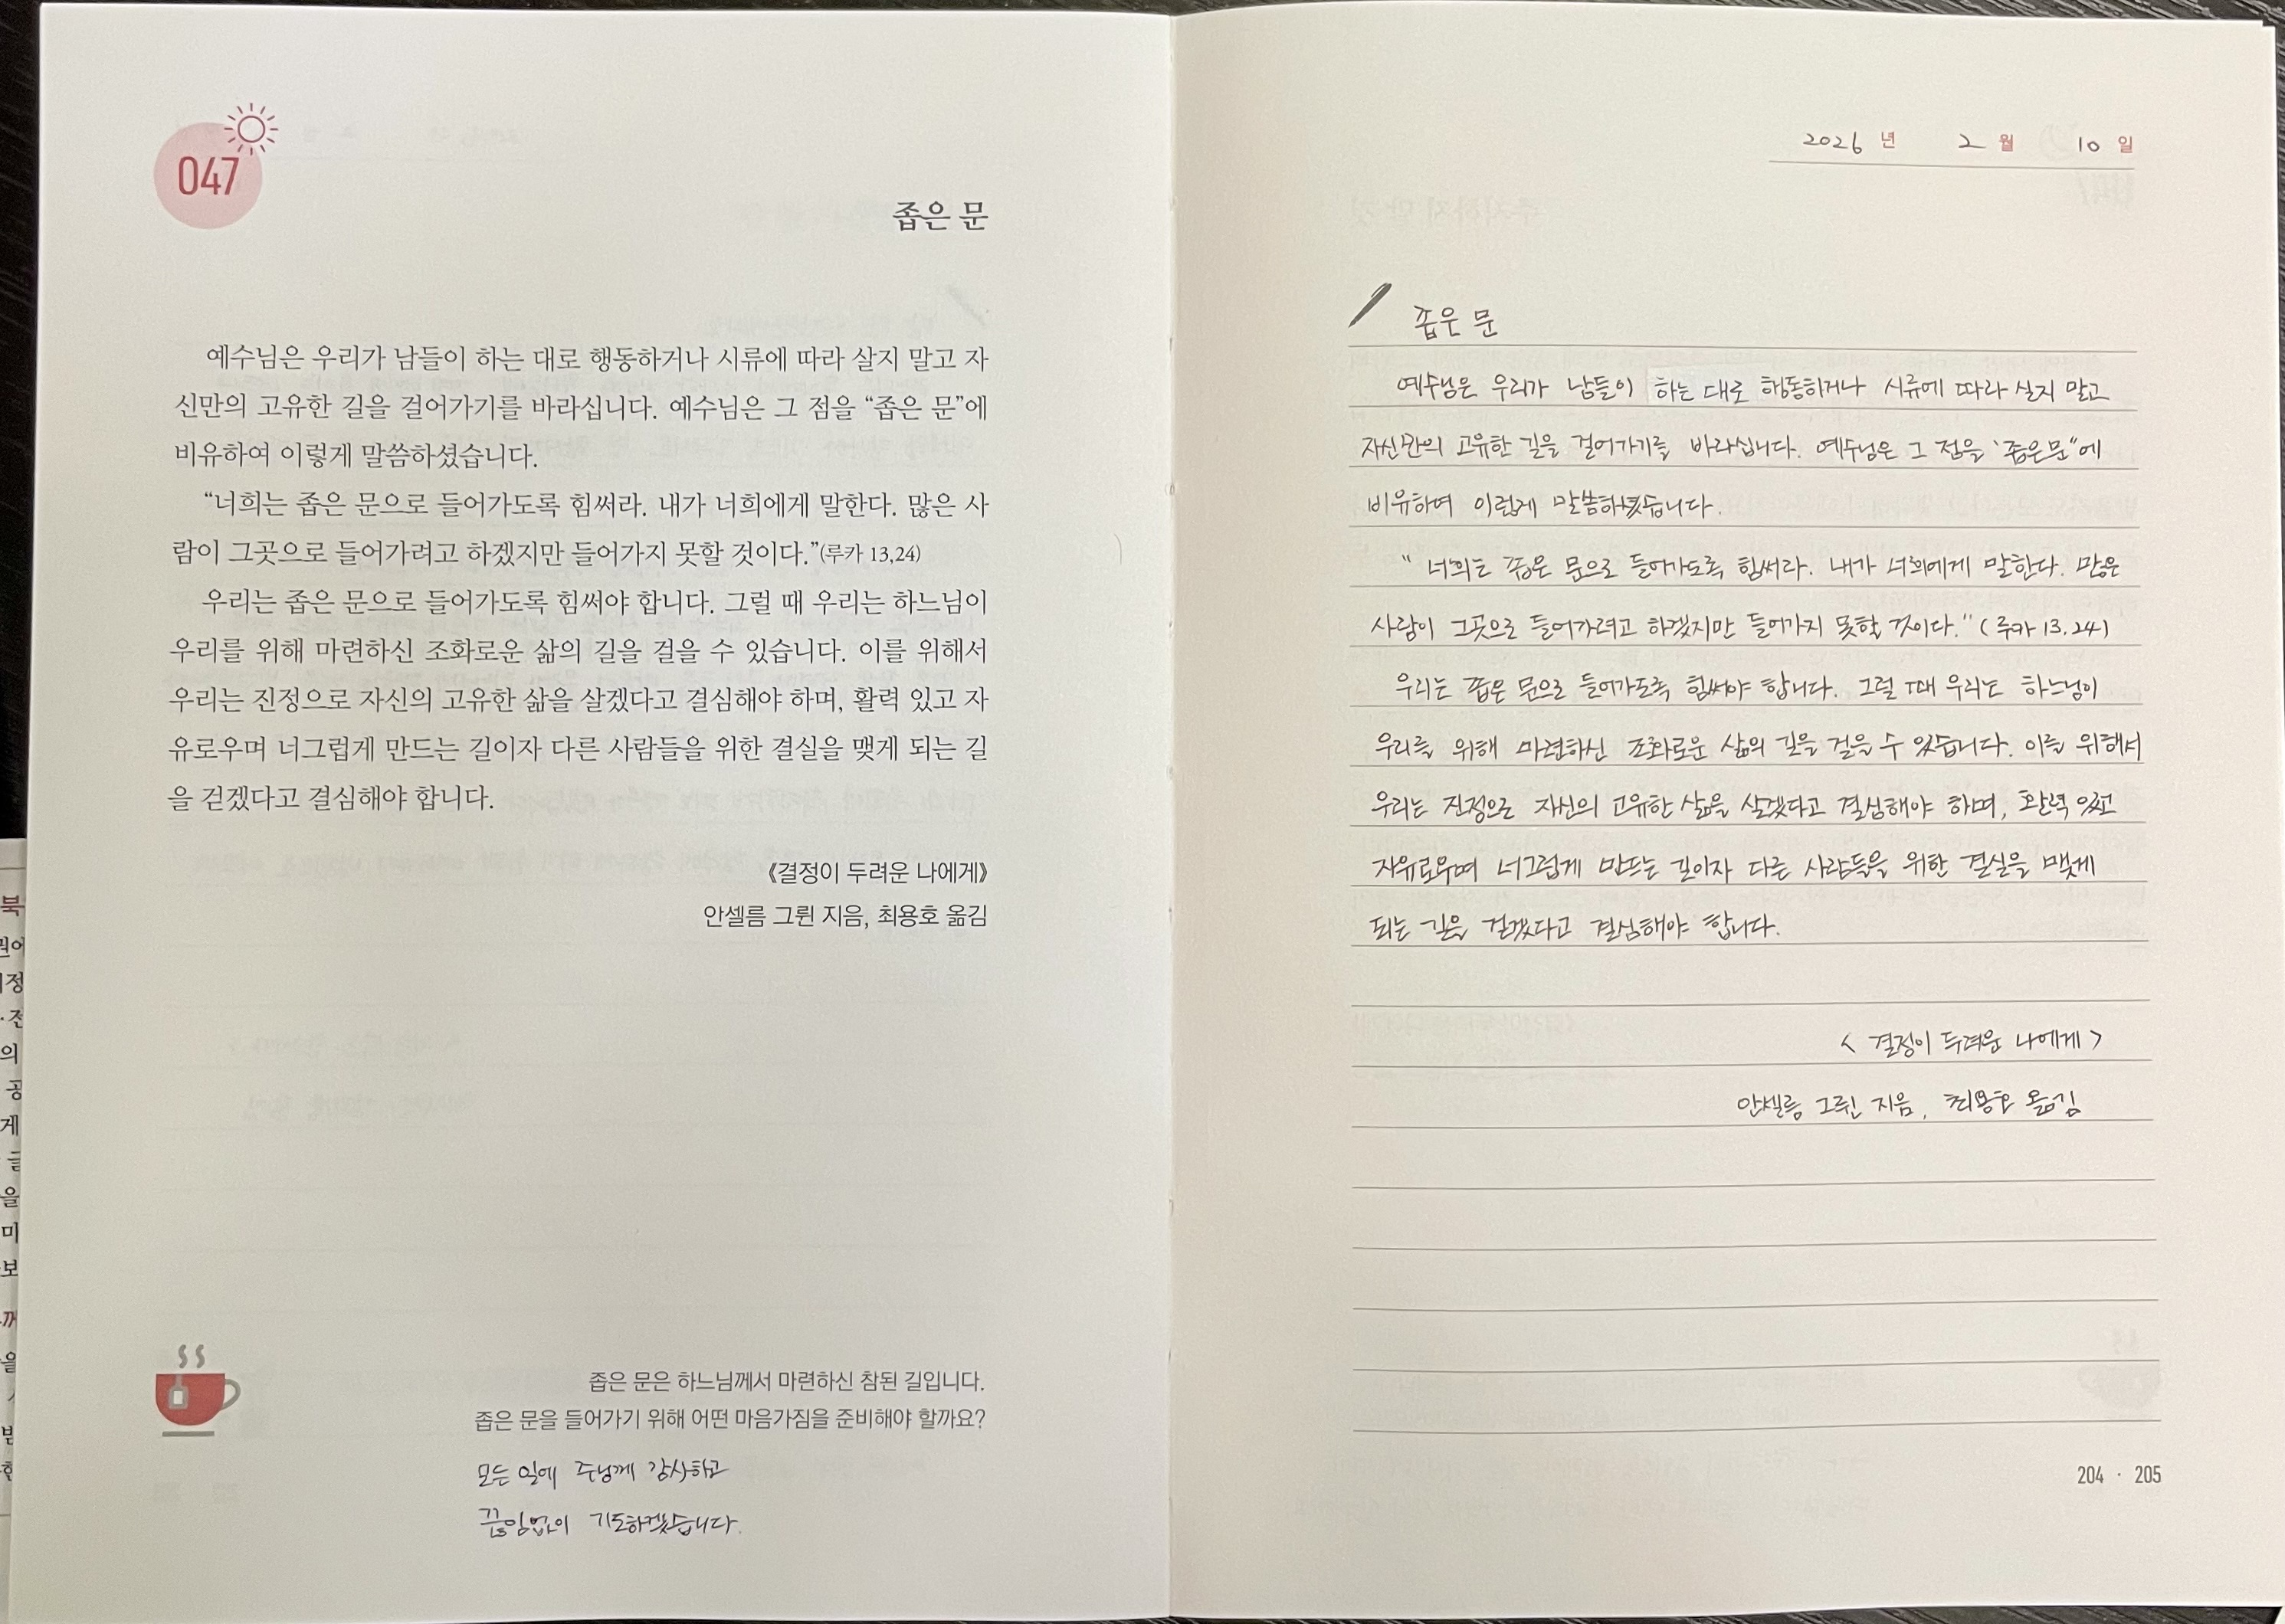 047
좁은 문
예수님은 우리가 남들이 하는 대로 행동하거나 시류에 따라 살지 말고 자
신만의 고유한 길을 걸어가기를 바라십니다. 예수님은 그 점을 “좁은 문”에
비유하여 이렇게 말씀하셨습니다.
“너희는 좁은 문으로 들어가도록 힘써라. 내가 너희에게 말한다. 많은 사
람이 그곳으로 들어가려고 하겠지만 들어가지 못할 것이다.”(루카 13,24)
우리는 좁은 문으로 들어가도록 힘써야 합니다. 그럴 때 우리는 하느님이
우리를 위해 마련하신 조화로운 삶의 길을 걸을 수 있습니다. 이를 위해서
우리는 진정으로 자신의 고유한 삶을 살겠다고 결심해야 하며, 활력 있고 자
유로우며 너그럽게 만드는 길이자 다른 사람들을 위한 결실을 맺게 되는 길
을 걷겠다고 결심해야 합니다.
《결정이 두려운 나에게》
안셀름 그륀 지음, 최용호 옮김
좁은 문은 하느님께서 마련하신 참된 길입니다.
좁은 문을 들어가기 위해 어떤 마음가짐을 준비해야 할까요?
모든 일에 주님께 감사하고
끊임없이 기도하겠습니다.
2026 년 2 월 10 일
좁은 문
예수님은 우리가 남들이 하는 대로 행동하거나 시류에 따라 살지 말고
자신만의 고유한 길을 걸어가기를 바라십니다. 예수님은 그 점을 ‘좁은문”에
비유하여 이렇게 말씀하셨습니다.
“ 너희는 좁은 문으로 들어가도록 힘써라. 내가 너희에게 말한다. 많은
사람이 그곳으로 들어가려고 하겠지만 들어가지 못할 것이다.” (루카 13.24)
우리는 좁은 문으로 들어가도록 힘써야 합니다. 그럴 때 우리는 하느님이
우리를 위해 마련하신 조화로운 삶의 길을 걸을 수 있습니다. 이를 위해서
우리는 진정으로 자신의 고유한 삶을 살겠다고 결심해야 하며, 활력 있고
자유로우며 너그럽게 만드는 길이자 다른 사람들을 위한 결실을 맺게
되는 길을 걷겠다고 결심해야 합니다.
< 결정이 두려운 나에게 >
안셀름 그륀 지음, 최용호 옮김
204 · 205